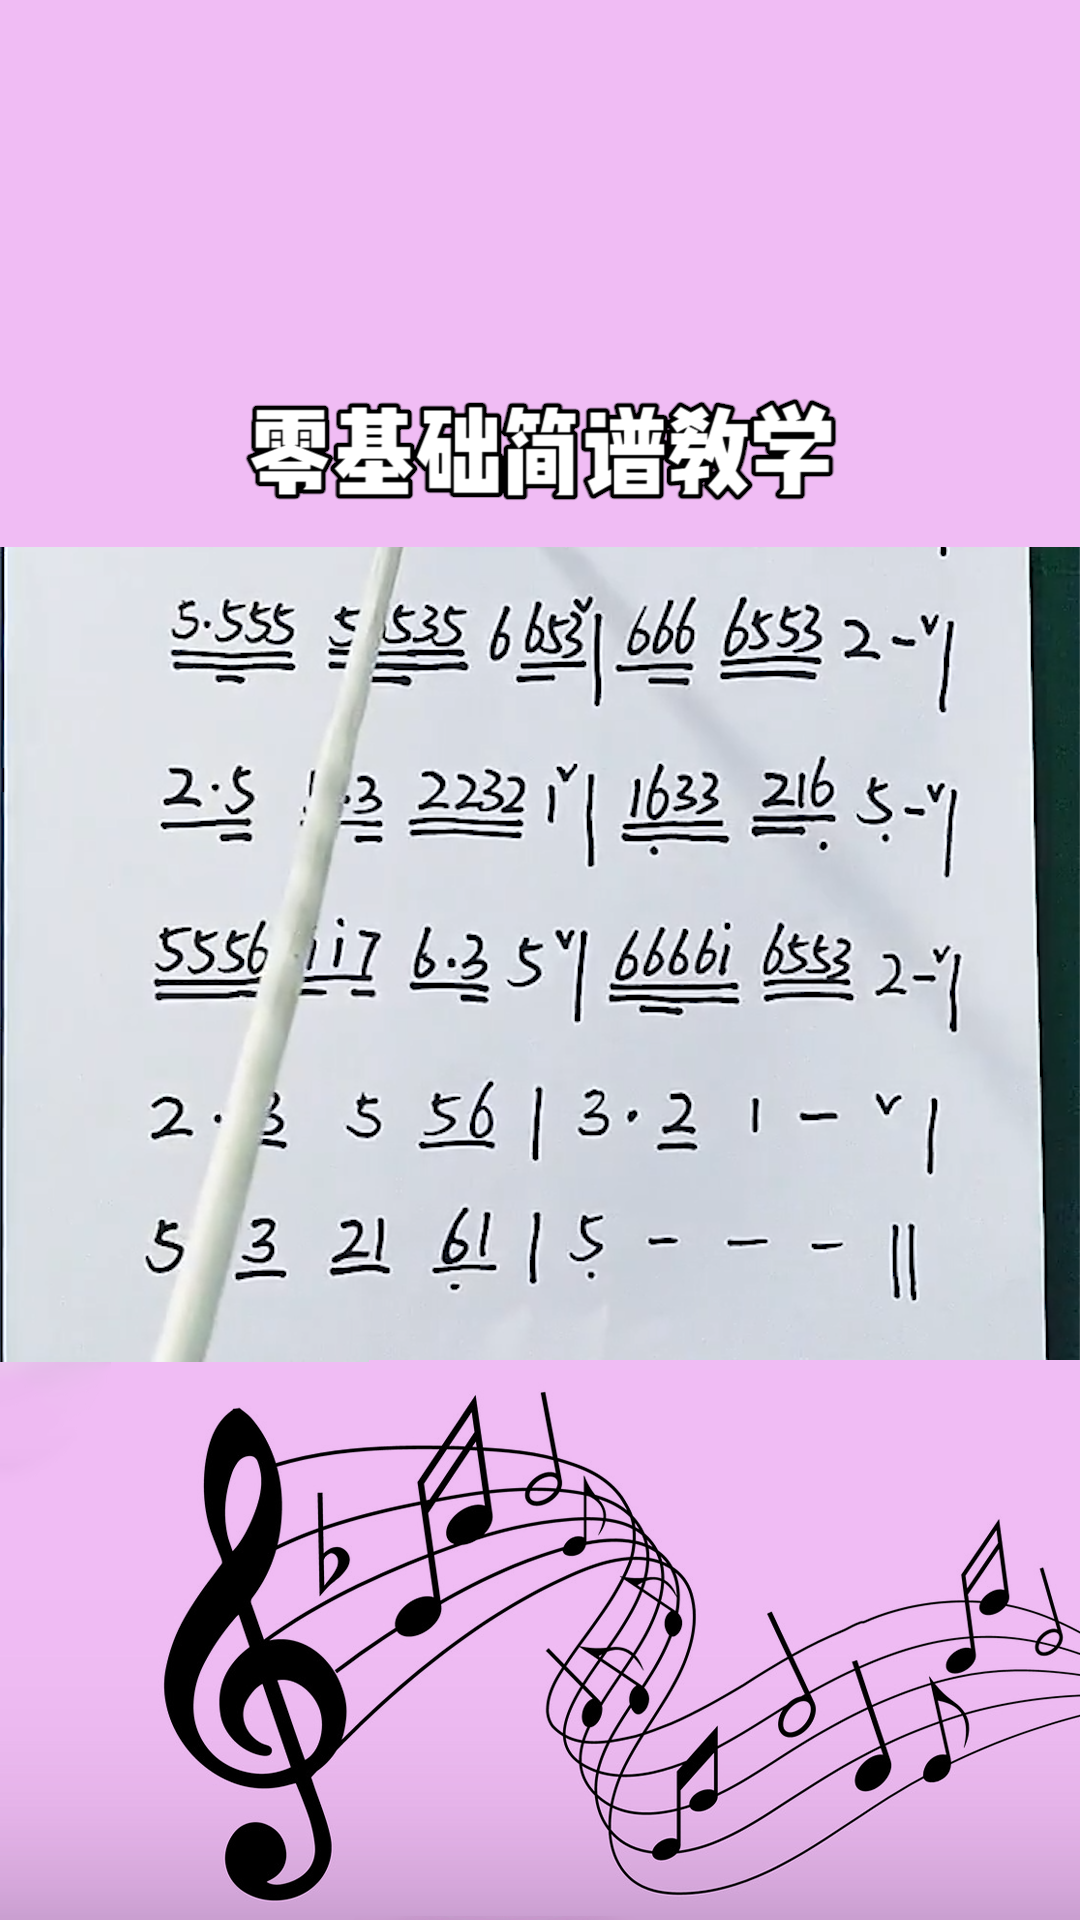 零基础简谱教学
5·555 5 535 6 653ˇ| 666 6553 2-ˇ|
2·5 ·3 2232 iˇ| 1633 216 5-ˇ|
5556 i i7 6·3 5ˇ| 6666i 6553 2-ˇ|
2·3 5 56 | 3·2 1 - ˇ|
5 3 21 61 | 5 - - - ||